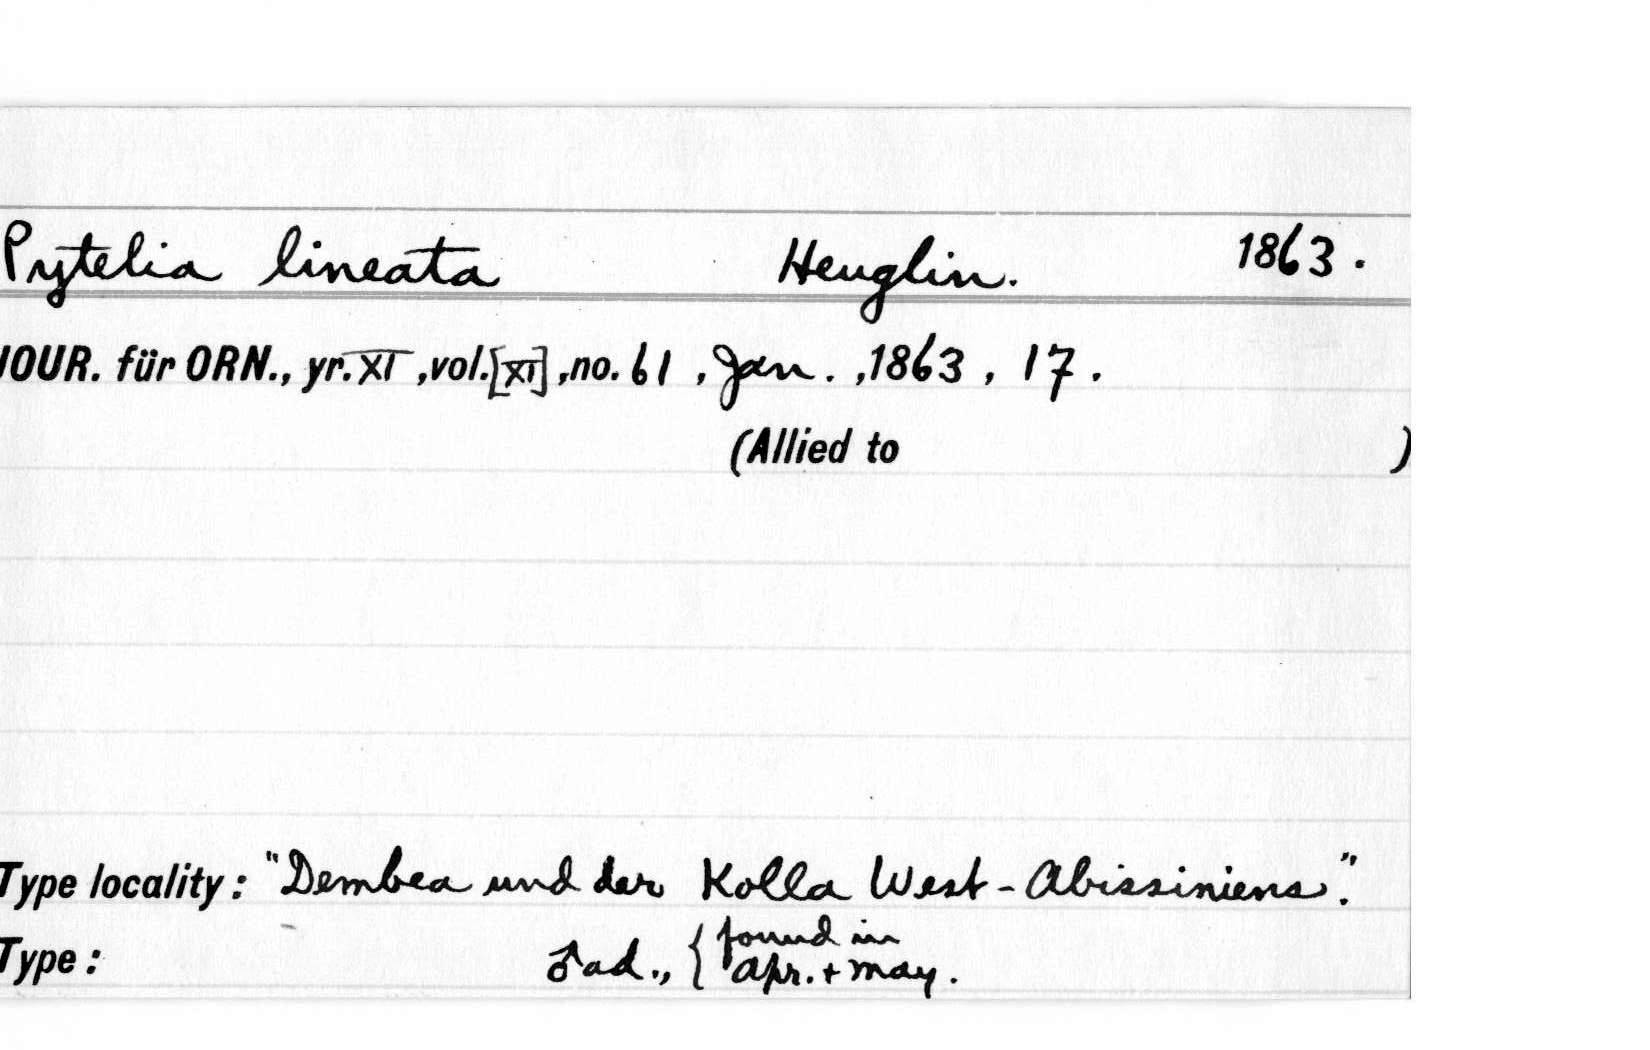 Pytelia lineata Heuglin. 1863.
JOUR. für ORN., yr. XI, vol. [XI], no. 61, Jan., 1863, 17.
(Allied to )
Type locality: "Dembea und der Kolla West-Abissiniens".
Type: ♂ ad., { found in
apr. + may.